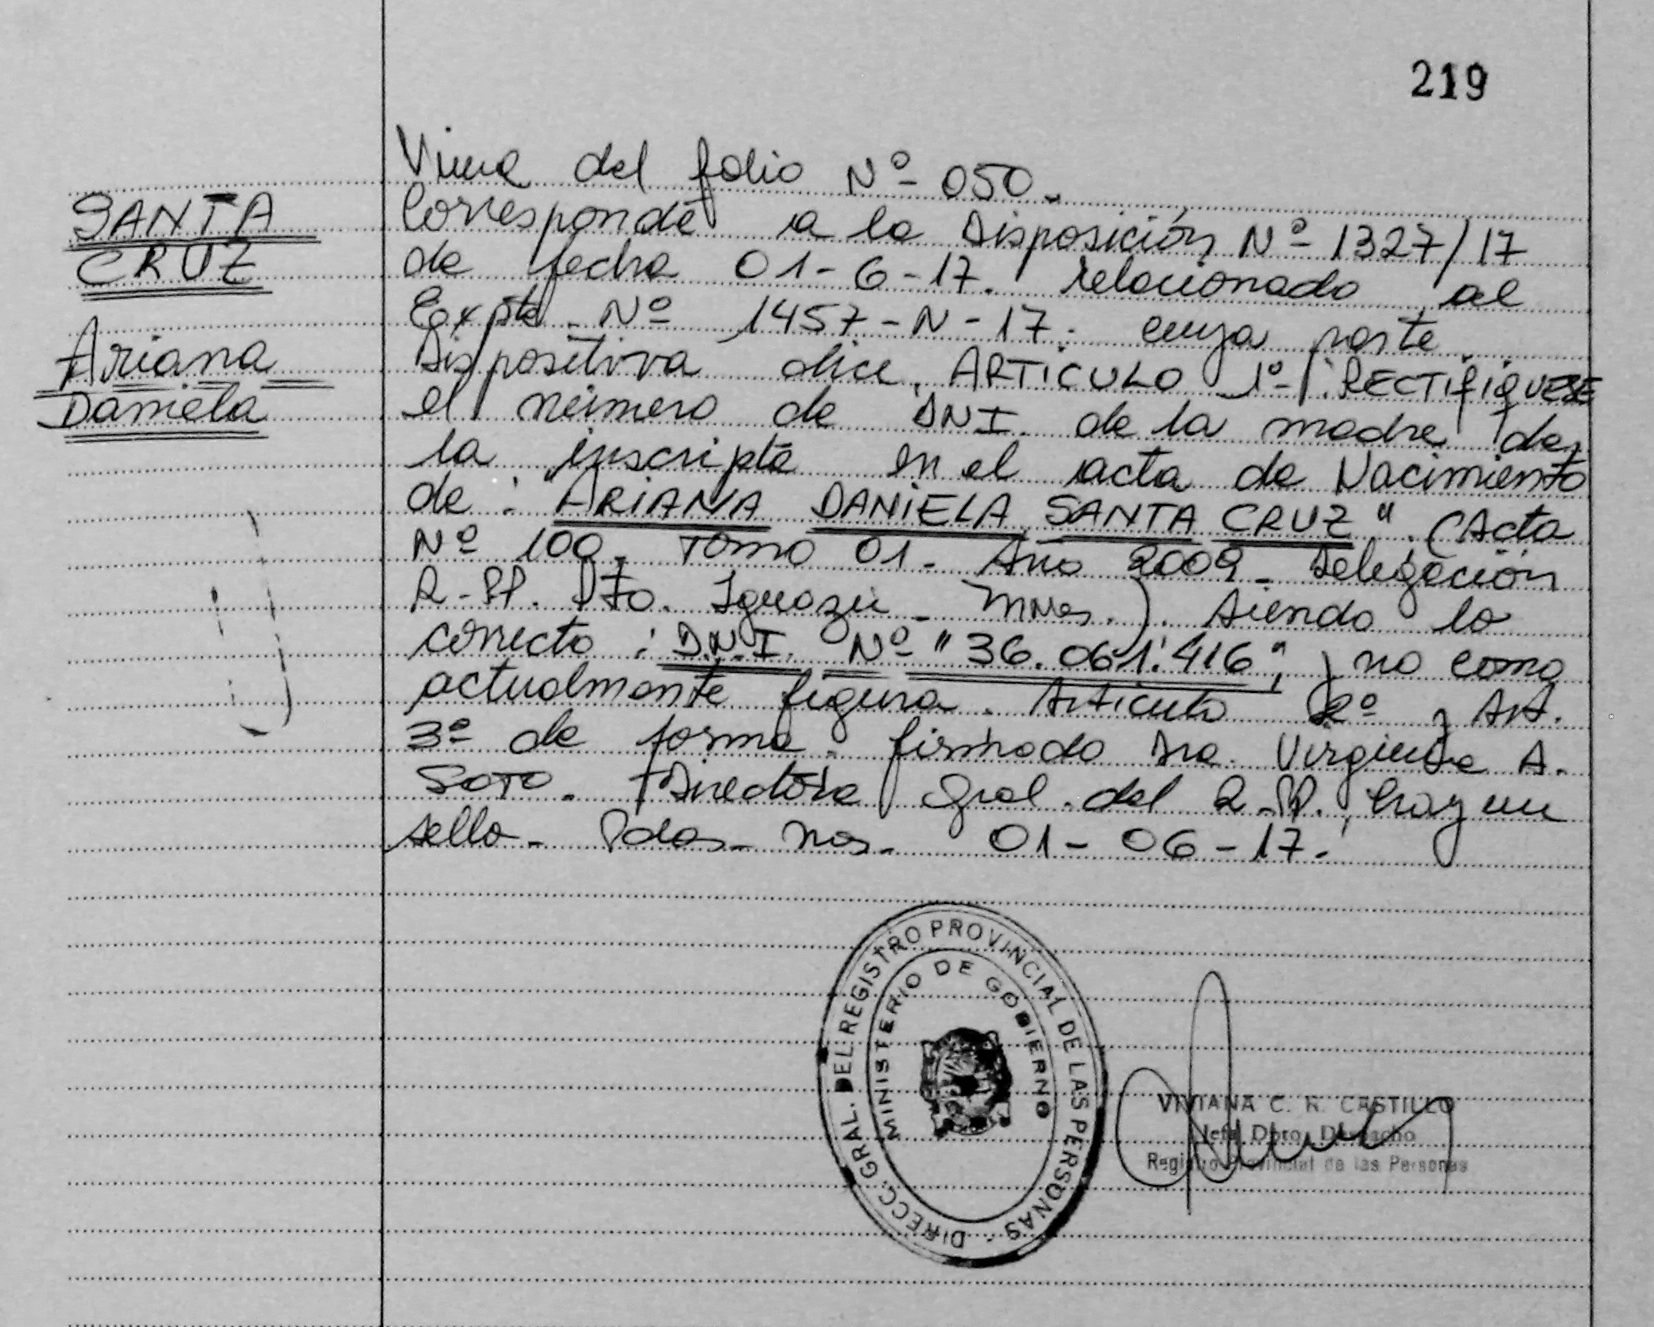 219
SANTA
CRUZ
Ariana
Daniela
Viene del folio Nº 050.
Corresponde a la Disposición Nº 1327/17
de fecha 01-6-17. relacionado al
Expte. Nº 1457-N-17. cuya parte
Dispositiva dice, ARTICULO 1º RECTIFIQUESE
el número de DNI. de la madre de
la inscripta en el acta de Nacimiento
de: "ARIANA DANIELA SANTA CRUZ" (Acta
Nº 100. Tomo 01. Año 2009. Delegación
R.PP. Pto. Iguazú - Mnes.). siendo lo
correcto: D.N.I. Nº "36.061.416"; y no como
actualmente figura. Articulo 2º y Art.
3º de forma. firmado Dra. Virginia A.
SOTO. Directora Gral. del R.PP. hay un
sello. Pdas. Mnes. 01-06-17.
DIRECC. GRAL. DEL REGISTRO PROVINCIAL DE LAS PERSONAS
MINISTERIO DE GOBIERNO
VIVIANA C. R. CASTILLO
Jefe Dpto. Despacho
Registro Provincial de las Personas